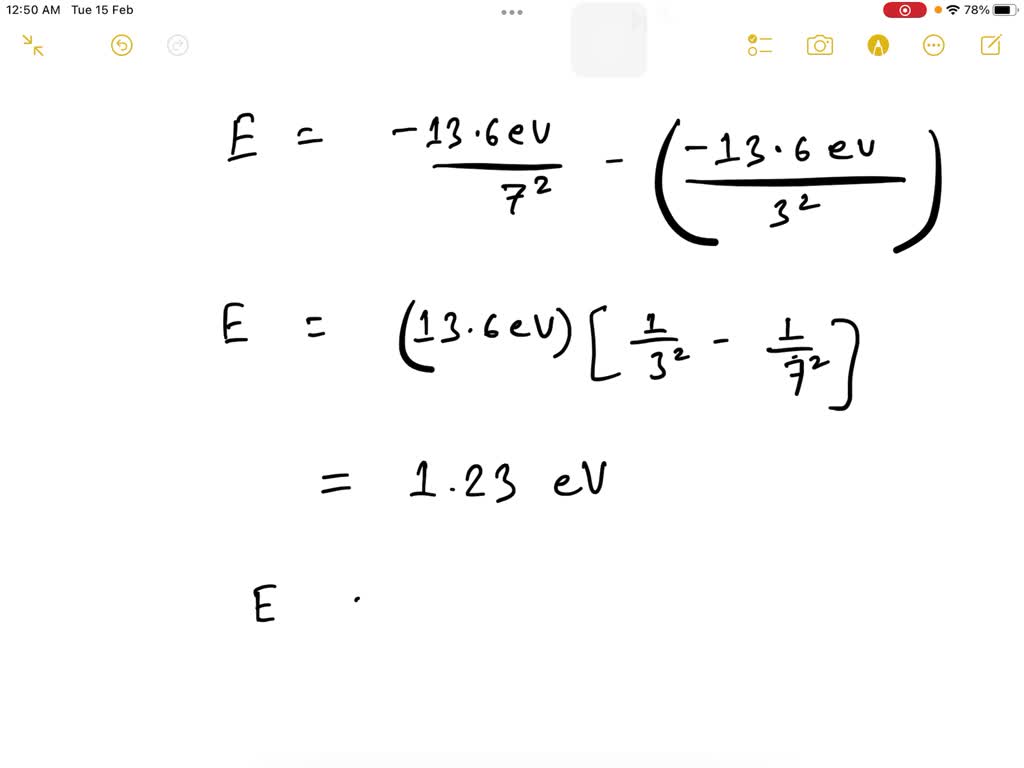 12:50 AM Tue 15 Feb 78%
E = -13.6eV/7² - (-13.6 eV/3²)
E = (13.6eV)[1/3² - 1/7²]
= 1.23 eV
E .